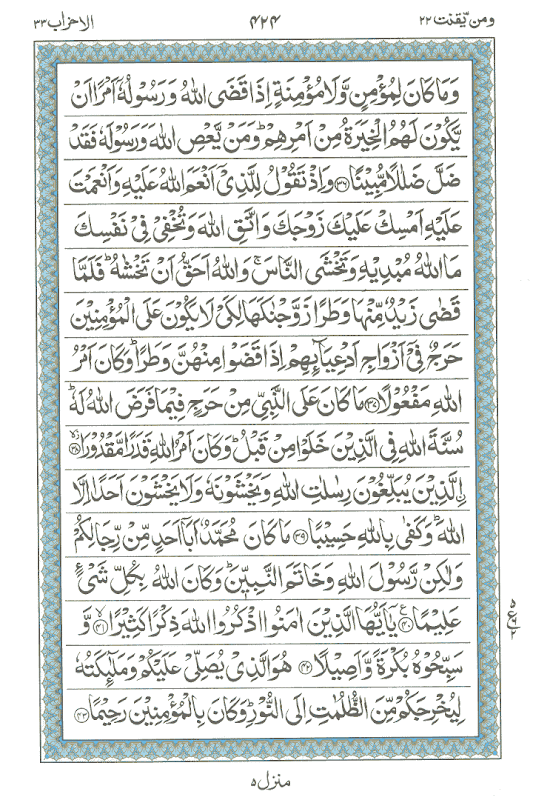 ومن يقنت ٢٢ ٤٢٤ الاحزاب ٣٣
وَمَا كَانَ لِمُؤْمِنٍ وَّلَا مُؤْمِنَةٍ اِذَا قَضَى اللّٰهُ وَرَسُوْلُهٗٓ اَمْرًا اَنْ
يَّكُوْنَ لَهُمُ الْخِيَرَةُ مِنْ اَمْرِهِمْ ؕ وَمَنْ يَّعْصِ اللّٰهَ وَرَسُوْلَهٗ فَقَدْ
ضَلَّ ضَلٰلًا مُّبِيْنًا ﴿۳۶﴾ وَاِذْ تَقُوْلُ لِلَّذِيْٓ اَنْعَمَ اللّٰهُ عَلَيْهِ وَاَنْعَمْتَ
عَلَيْهِ اَمْسِكْ عَلَيْكَ زَوْجَكَ وَاتَّقِ اللّٰهَ وَتُخْفِيْ فِيْ نَفْسِكَ
مَا اللّٰهُ مُبْدِيْهِ وَتَخْشَى النَّاسَ ۚ وَاللّٰهُ اَحَقُّ اَنْ تَخْشٰىهُ ؕ فَلَمَّا
قَضٰى زَيْدٌ مِّنْهَا وَطَرًا زَوَّجْنٰكَهَا لِكَيْ لَا يَكُوْنَ عَلَى الْمُؤْمِنِيْنَ
حَرَجٌ فِيْٓ اَزْوَاجِ اَدْعِيَآئِهِمْ اِذَا قَضَوْا مِنْهُنَّ وَطَرًا ؕ وَكَانَ اَمْرُ
اللّٰهِ مَفْعُوْلًا ﴿۳۷﴾ مَا كَانَ عَلَى النَّبِيِّ مِنْ حَرَجٍ فِيْمَا فَرَضَ اللّٰهُ لَهٗ ؕ
سُنَّةَ اللّٰهِ فِي الَّذِيْنَ خَلَوْا مِنْ قَبْلُ ؕ وَكَانَ اَمْرُ اللّٰهِ قَدَرًا مَّقْدُوْرًا ﴿۳۸﴾
اۨلَّذِيْنَ يُبَلِّغُوْنَ رِسٰلٰتِ اللّٰهِ وَيَخْشَوْنَهٗ وَلَا يَخْشَوْنَ اَحَدًا اِلَّا
اللّٰهَ ؕ وَكَفٰى بِاللّٰهِ حَسِيْبًا ﴿۳۹﴾ مَا كَانَ مُحَمَّدٌ اَبَآ اَحَدٍ مِّنْ رِّجَالِكُمْ
وَلٰكِنْ رَّسُوْلَ اللّٰهِ وَخَاتَمَ النَّبِيّٖنَ ؕ وَكَانَ اللّٰهُ بِكُلِّ شَيْءٍ
عَلِيْمًا ﴿۴۰﴾ يٰٓاَيُّهَا الَّذِيْنَ اٰمَنُوا اذْكُرُوا اللّٰهَ ذِكْرًا كَثِيْرًا ﴿۴۱﴾ وَّ
سَبِّحُوْهُ بُكْرَةً وَّاَصِيْلًا ﴿۴۲﴾ هُوَ الَّذِيْ يُصَلِّيْ عَلَيْكُمْ وَمَلٰٓئِكَتُهٗ
لِيُخْرِجَكُمْ مِّنَ الظُّلُمٰتِ اِلَى النُّوْرِ ؕ وَكَانَ بِالْمُؤْمِنِيْنَ رَحِيْمًا ﴿۴۳﴾
منزل ٥